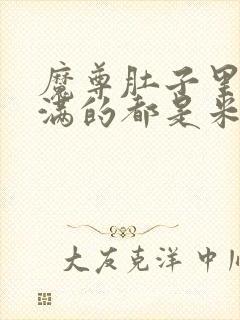 魔尊肚子里
满的都是米
大友克洋 中川